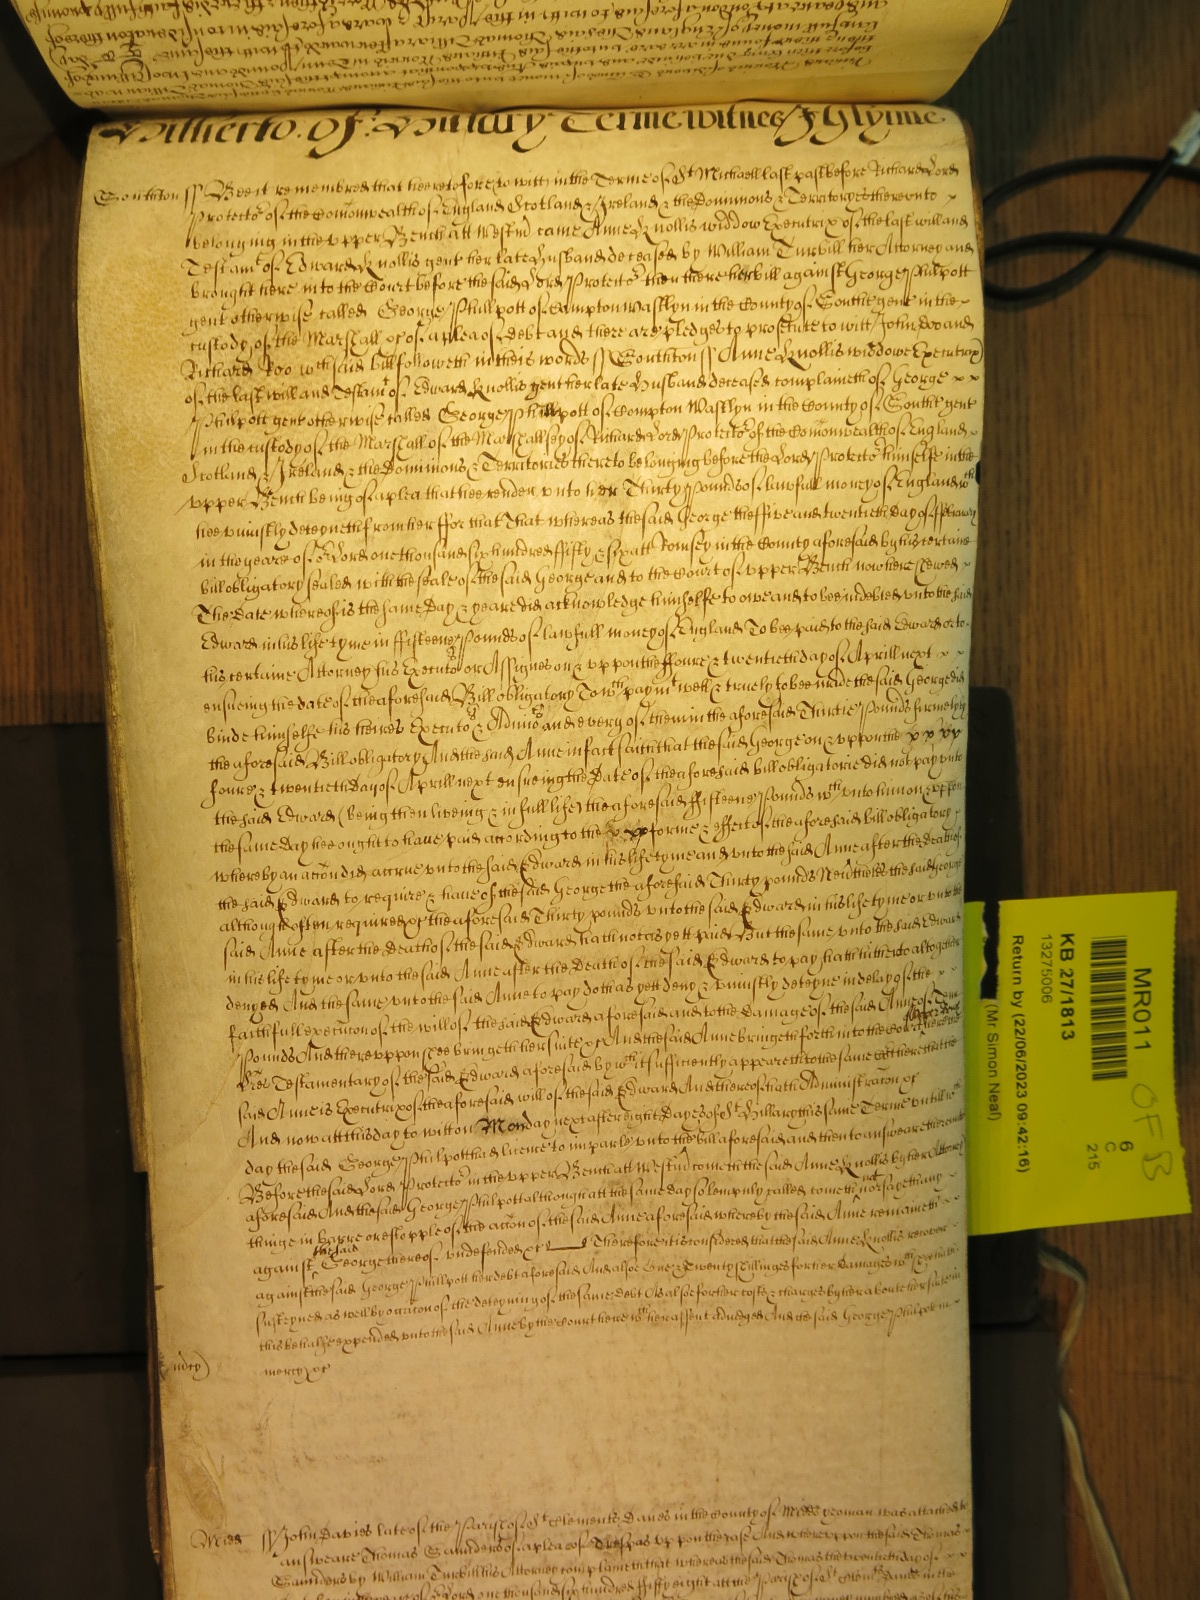 Hitherto of Hillary Terme witnes J Glynne
Southton ss Bee it remembred that heeretofore to witt in the Terme of St Michaell last past before Richard Lord
Protector of the Comonwealth of England Scotland & Ireland & the Dominions & Territoryes thereunto
belonging in the upper Bench att Westmr came Anne Knollis widdow Executrix of the last will and
Testamt of Edward Knollis gent her late Husband deceased by William Turvill her Attorney and
brought here into the Court before the said Lord Protector then there her bill against George Philpott
gent otherwise called George Phillpott of Compton Wascelyn in the County of Southt gent in the
custody of the Marshall &c of a plea of debt and there are pledges to prosecute to witt John Doo and
Richard Roo wch said bill followeth in theis words ss Southton ss Anne Knollis widdowe Executrix
of the last will and Testamt of Edward Knollis gent her late Husband deceased complaineth of George
Philpott gent otherwise called George Phillpott of Compton Wascelyn in the County of Southt gent
in the custody of the Marshall of the Marshallsey of Richard Lord Protector of the Comonwealth of England
Scotland & Ireland & the Dominions & Territories thereto belonging before the Lord Protector himselfe in the
upper Bench being of a plea that hee render unto her Thirty Pounds of lawfull money of England wch
hee uniustly deteyneth from her ffor that That whereas the said George the ffive and twentieth day of ffebruary
in the yeare of or Lord one thousand six hundred ffifty & six att Romsey in the County aforesaid by his certaine
bill obligatory sealed with the seale of the said George and to the Court of upper Bench now here shewed
The Date whereof is the same Day & yeare did acknowledge himselfe to owe and to bee indebted unto the said
Edward in his life tyme in ffifteene Pounds of lawfull money of England To bee paid to the said Edward or to
his certaine Attorney his Executors or Assignes on & uppon the ffoure & twentieth day of Aprill next
ensueing the date of the aforesaid Bill obligatory To wch paymt well & truely to bee made the said George did
binde himselfe his heires Executors & Admors and every of them in the aforesaid Thirtie Pounds firmely by
the aforesaid Bill obligatory And the said Anne in fact saith that the said George on & uppon the
foure & twentieth day of Aprill next ensueing the Date of the aforesaid bill obligatorie did not pay unto
the said Edward (being then liveing & in full life) the aforesaid ffifteene Pounds wch unto him on & uppon
the same day hee ought to have paid according to the forme & effect of the aforesaid bill obligatory
whereby an accon did accrue unto the said Edward in his life tyme and unto the said Anne after the death of
the said Edward to require & have of the said George the aforesaid Thirty pounds Neverthelesse the said George
although often required &c the aforesaid Thirty pounds unto the said Edward in his life tyme or unto the
said Anne after the Death of the said Edward hath not as yett paid But the same unto the said Edward
in his life tyme or unto the said Anne after the Death of the said Edward to pay hath hitherto altogether
denyed And the same unto the said Anne to pay doth as yett deny & uniustly deteyne in delay of the
faithfull execucon of the will of the said Edward aforesaid and to the Damage of the said Anne of Tenn
Pounds And thereuppon shee bringeth her suite &c And the said Anne bringeth forth into the Court here the
Lres Testamentary of the said Edward aforesaid by wch it sufficiently appeareth to the same Court here that the
said Anne is Executrix of the aforesaid will of the said Edward And thereof hath Administracon &c
And now att this day to witt on Monday next after eight Dayes of St Hillary this same Terme untill wch
day the said George Philpott had licence to imparle unto the bill aforesaid and then to answeare thereunto
Before the said Lord Protector in the upper Bench att Westmr cometh the said Anne Knollis by her Attorney
aforesaid And the said George Philpott although att the same day solempnly called cometh not nor sayeth any
thinge in barre or estopple of the accon of the said Anne aforesaid whereby the said Anne remaineth
against the said George thereof undefended &c Therefore it is considered that the said Anne Knollis recover
against the said George Phillpott her debt aforesaid And alsoe one & Twenty shillinges for her damages wch shee hath
susteyned as well by occacon of the deteyning of the same debt As alsoe for her costs & charges by her aboute her suite in
this behalfe expended unto the said Anne by the Court here wth her assent adiudged And the said George Philpott in
mercy &c
Midd ss John Davies late of the Parish of St Clements Danes in the County of Midd yeoman was attached to
answeare Thomas Saunders of a plea of Trespas uppon the case And whereuppon the said Thomas
Saunders by William Turvill his Attorney complaineth that whereas the said Thomas the twentieth day of
of or Lord one thousand six hundred ffifty eight att the Parish of St Clemt Danes in the
MR011
KB 27/1813
13275006
Return by (22/06/2023 09:42:16)
(Mr Simon Neal)
6
C
215
OF B